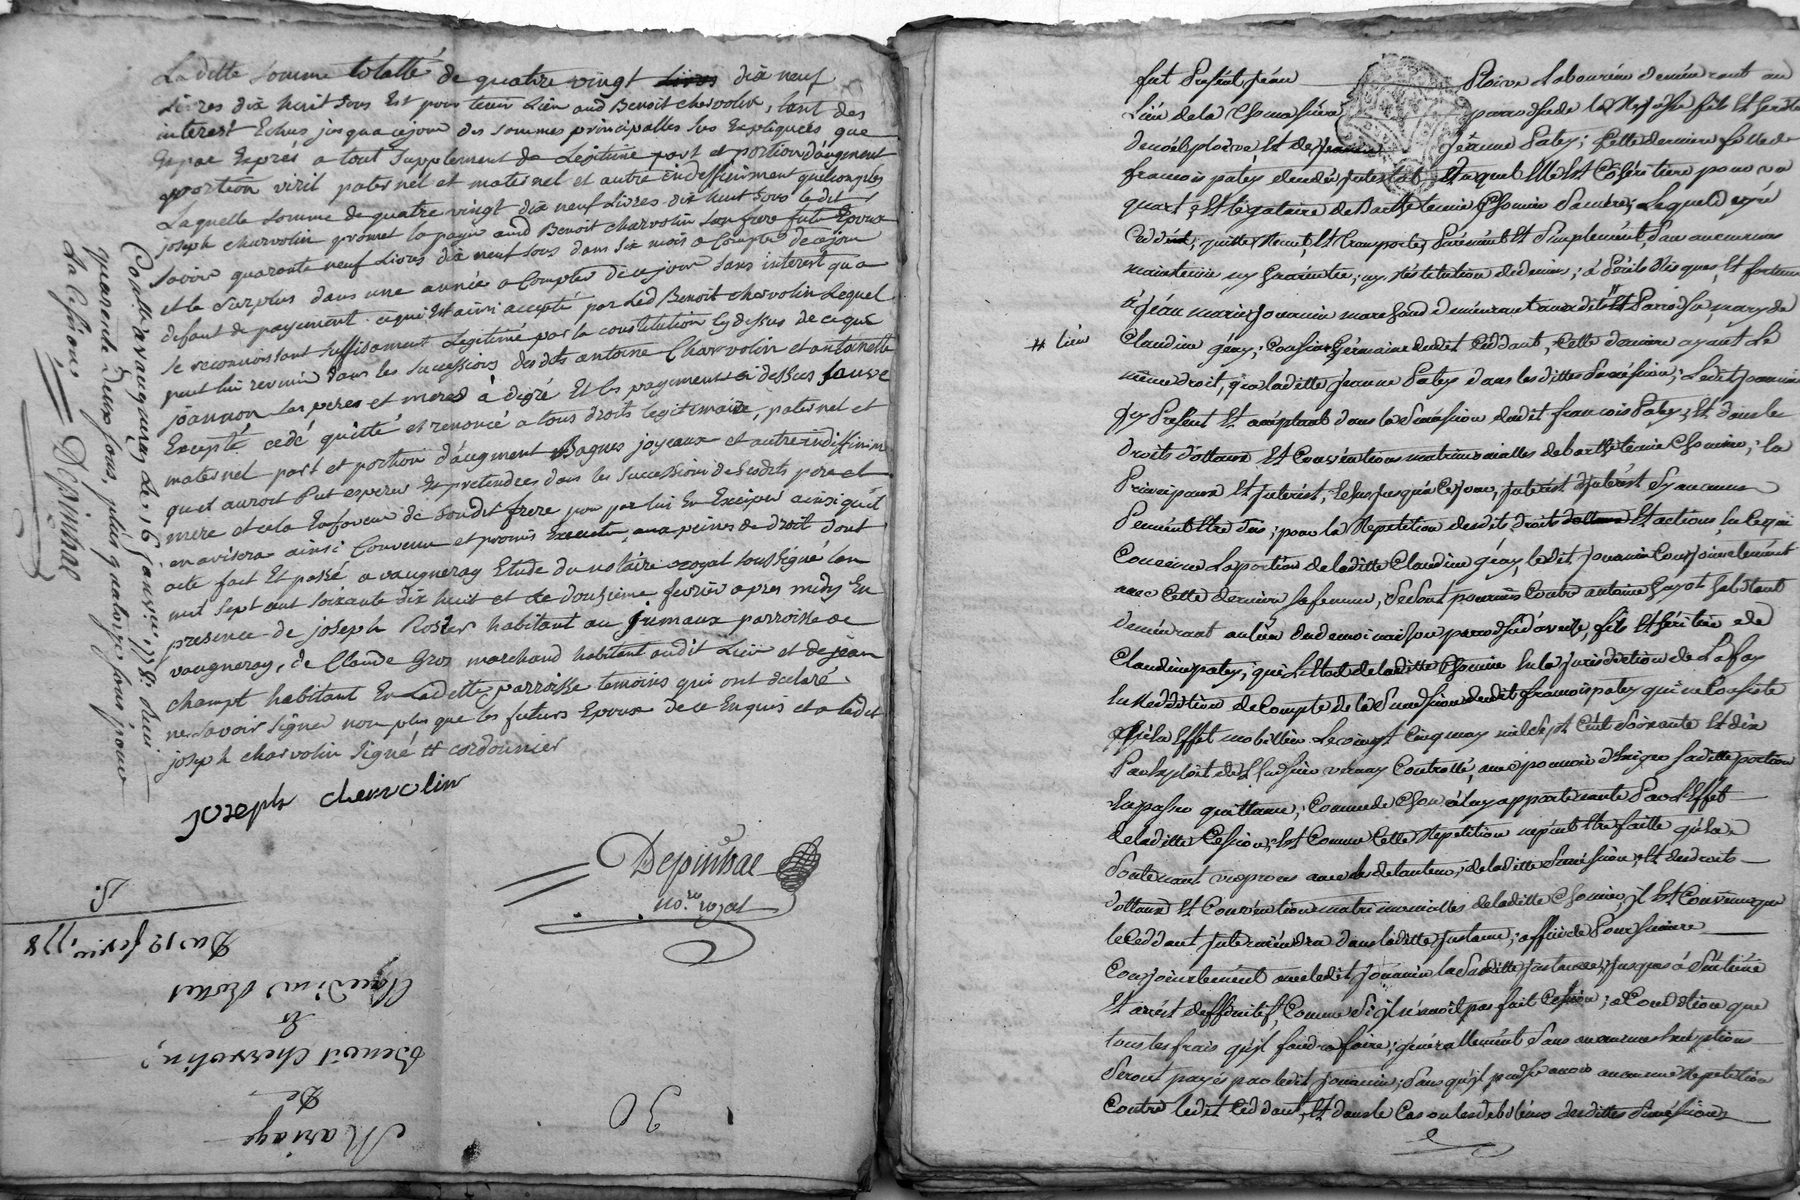 Laditte somme totalle de quatre vingt dix neuf
Livres dix huit sous Est pour tenir Lieu aud Benoit charvolin, tant des
interest Echus jusqua cejour des sommes principalles sus Expliquées que
Exprés a tout supplement de Legitime part et portion d'augment
portion viril paternel et maternel et autre indeffiniment quelconques
Laquelle somme de quatre vingt dix neuf Livres dix huit sous ledit
joseph charvolin promet la payer aud Benoit charvolin son frere futur Epoux
savoir quarante neuf Livres dix neuf sous dans six mois a Compter de cejour
et le surplus dans une année a Compter de ce jour sans interest qu a
defaut de payement. ce qui Est ainsi accepté par Led Benoit charvolin Lequel
se reconnoissant suffisament Legitimé par la constitution cy dessus de ce qui
peut lui revenir dans les successions desdits antoine Charvolin et antoinette
joannon ses peres et meres à digré Et les payements ci dessus sauve
Excepté cedé quitté et renoncé a tous droits legitimaire, paternel et
maternel part et portion d'augment Bagues joyeaux et autre indiffinim
qu'il auroit Put esperer Et pretendres dans les succession desdits pere et
mere et cela En faveur de Sondit frere pour par lui En Exciper ainsi qu'il
en avisera ainsi Convenu et promis Executer aux peines de droit dont
acte fait Et passé a vaugneray Etude du notaire royal soussigné lan
mil sept cent soixante dix huit et le douzieme fevrier apres midy En
presence de joseph Rosier habitant au grimaux parroisse de
vaugneray, de Claude Gros marchand habitant audit Lieu et de jean
champt habitant En Laditte parroisse temoins qui ont declaré
ne savoir signer non plus que les futurs Epoux de ce Enquis et a ledit
joseph charvolin signé # cordonnier
joseph charvolin
Depinhac
no.re royal
Con.lle a vaugneray Le 16 fevrier 1778. Recu
quarante deux sous, plus quatorze sous pour
La Cession.
Depinhac
Mariage
De
Benoit charvolin,
Et
Claudine
Du 12 fev.er 1778
30
fut Présent Jean Ploivre Laboureur demeurant au
Lieu de la Thomassiere parroisse de
de noël ploivre Et de Jeanne Patey; Cette derniere fille de
francois patey Duquel Elle Est Cohéritiere pour un
quart, Et légataire de Barthelemie Thomine Sa mere; Lequel degré
Cedde, quitte Remet, Et transporte, Purement Et Simplement, Sans aucune
maintenue ny Garantie; ny Restitution de deniers; à Périls Risques, Et fortune
à Jean marie Jouanin marchand demeurant audit # Et Parroisse, mary de
# lieu
Claudine géay; Cousine Germaine dudit Ceddant, Cette derniere ayant Le
même droit, que laditte Jeanne Patey dans lesdittes Succession; Ledit Jouanin
Icy Présent Et acceptant dans la Succession dudit francois Patey; Et dans les
droits Et Conventions matrimonialles de barthelemie Thomine; la
Principaux Et Interest, Echus Jusqu'à Ce jour, Interest d'Interest Sy aucuns
Peuvent Etre dus; pour la Repetition desdits droits Et actions, En Ce qui
Concerne La portion de laditte Claudine géay, ledit Jouanin Conjointement
avec Cette derniere Sa femme, Se Sont pourvus Contre antoine Guyot habitant
demeurant au lieu parroisse fils Et héritier de
Claudine patey; qui laditte Thomine En la Jurisdiction de Lafay
En Reddition de Compte de la Succession dudit francois patey qui ne Consiste
qu'en Effet mobilliers Le vingt Cinq may mil Sept Cent Soixante Et dix
Par Exploit de Controllé, avec pouvoir d'Exiger laditte portion
En passer quittance; Comme de Chose à luy appartenante Par L'Effet
de laditte Cession; Et Comme Cette Repetition ne peut Etre faitte qu'En
Soutenant un procès avec de laditte Succession; Et des droits
Et Convention matrimonialles de laditte Thomine; il Est Convenu que
le Ceddant Interviendra dans laditte Instance; affin de Poursuivre
Conjointement avec ledit Jouanin la Susditte Instance; Jusques à Sentence
Et arrest deffinitif, Comme S'il n'avoit pas fait Cession; à Condition que
tous les frais qu'il faudra faire; généralement Sans aucunes Exceptions
Seront payés par ledit Jouanin; Sans qu'il puisse avoir aucune Repetition
Contre ledit Ceddant, Et dans le Cas ou les debiteurs desdittes Successions